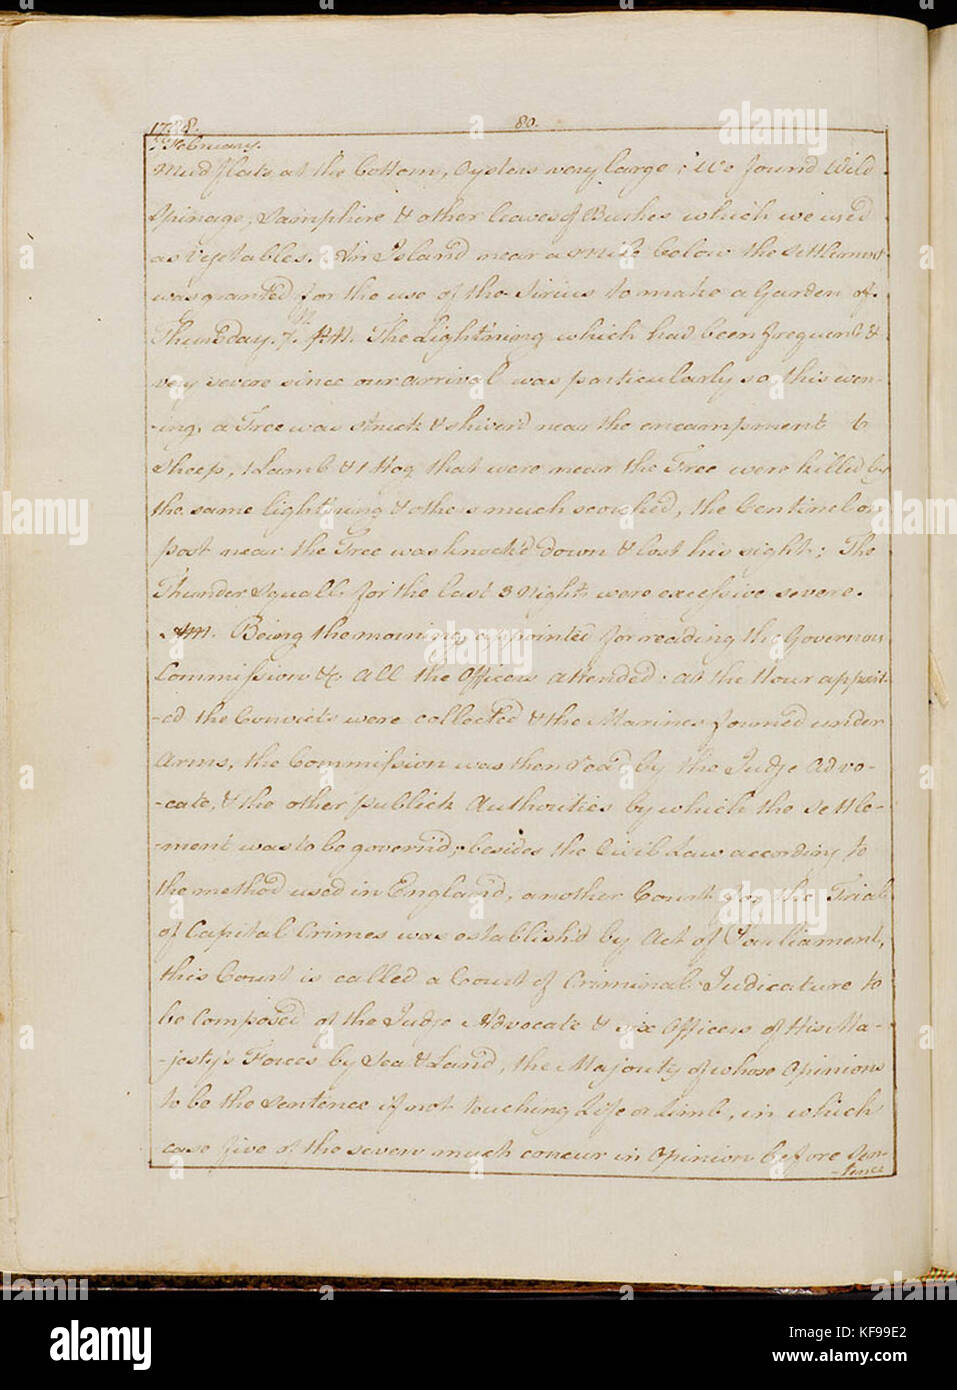 1788.
80.
February.
Mud flats at the bottom, Oysters very large; We found Wild
Spinage, Samphire & other leaves of Bushes which we used
as Vegetables. An Island near a Mile below the settlement
was granted for the use of the Sirius to make a Garden of.
Thursday. 7th. The Lightning which had been frequent &
very severe since our arrival was particularly so this even-
-ing, a Tree was struck & shiver'd near the encampment 6
Sheep, 1 Lamb & 1 Hog that were near the Tree were killed by
the same lightning & others much scorched, the Centinel on
post near the Tree was knock'd down & lost his sight; The
Thunder Squalls for the last 3 Nights were excessive severe.
AM. Being the morning appointed for reading the Governors
Commission &c. all the Officers attended: at the Hour appoint-
-ed the Convicts were collected & the Marines formed under
Arms, the Commission was then read by the Judge Advo-
-cate, & the other publick Authorities by which the settle-
-ment was to be govern'd; besides the Civil Law according to
the method used in England, another Court for the Trial
of Capital Crimes was establish'd by Act of Parliament,
this Court is called a Court of Criminal Judicature to
be Composed of the Judge Advocate & six Officers of His Ma-
-jesty's Forces by Sea & Land, the Majority of whose Opinions
to be the Sentence if not touching Life or Limb, in which
case five of the seven much concur in Opinion before Sen-
-tence
alamy
KF99E2
www.alamy.com